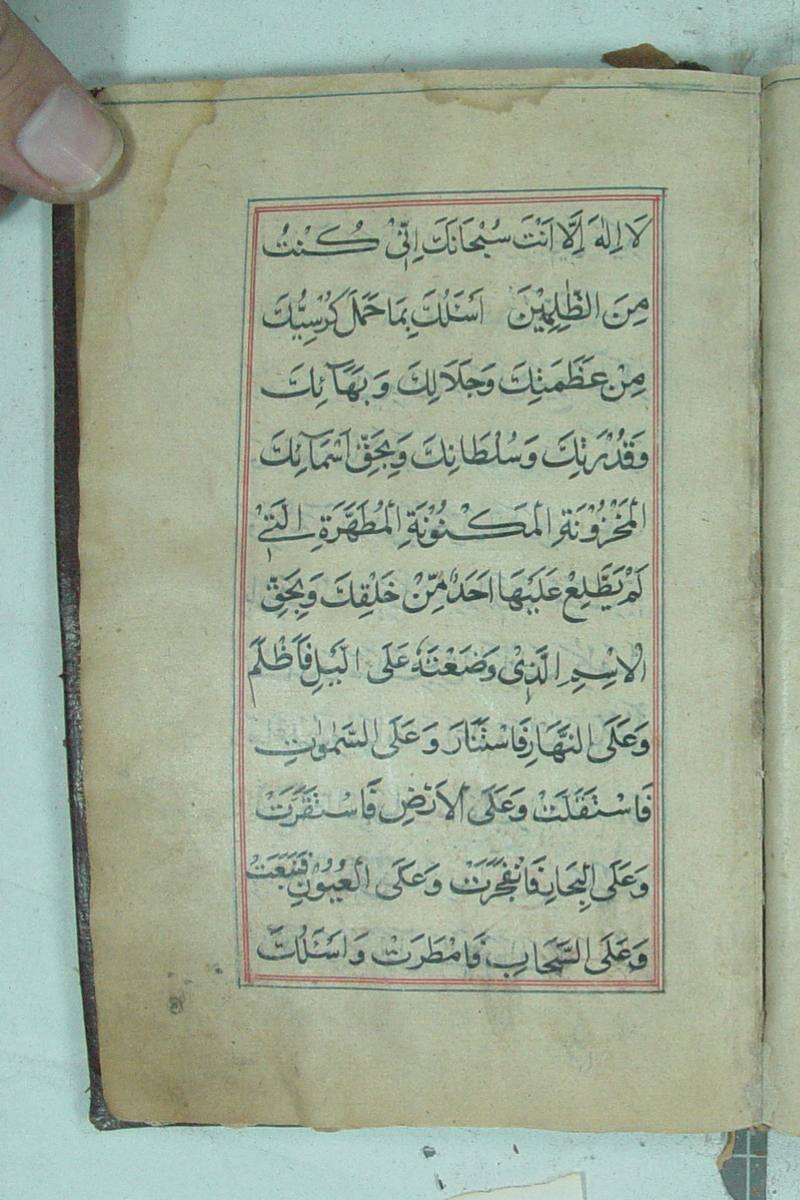 لَا اِلٰهَ اِلَّا اَنْتَ سُبْحَانَكَ اِنِّىْ كُنْتُ
مِنَ الظّٰلِمِيْنَ اَسْئَلُكَ بِمَا حَمَلَ كُرْسِيُّكَ
مِنْ عَظَمَتِكَ وَجَلَالِكَ وَبَهَآئِكَ
وَقُدْرَتِكَ وَسُلْطَانِكَ وَبِحَقِّ اَسْمَآئِكَ
الْمَخْزُوْنَةِ الْمَكْنُوْنَةِ الْمُطَهَّرَةِ الَّتِىْ
لَمْ يَطَّلِعْ عَلَيْهَا اَحَدٌ مِّنْ خَلْقِكَ وَبِحَقِّ
الْاِسْمِ الَّذِىْ وَضَعْتَهٗ عَلَى الَّيْلِ فَاَظْلَمَ
وَعَلَى النَّهَارِ فَاسْتَنَارَ وَعَلَى السَّمٰوٰتِ
فَاسْتَقَلَّتْ وَعَلَى الْاَرْضِ فَاسْتَقَرَّتْ
وَعَلَى الْبِحَارِ فَانْفَجَرَتْ وَعَلَى الْعُيُوْنِ فَنَبَعَتْ
وَعَلَى السَّحَابِ فَامْطَرَتْ وَاَسْئَلُكَ